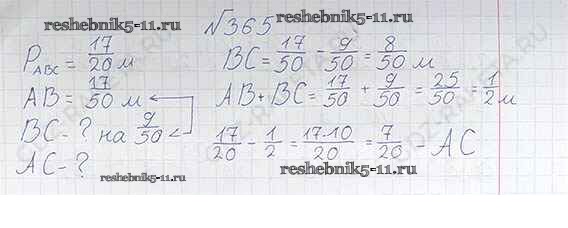 reshebnik5-11.ru
№365
reshebnik5-11.ru
P_ABC = 17/20 м
BC = 17/50 - 9/50 = 8/50 м
AB = 17/50 м
AB + BC = 17/50 + 9/50 = 25/50 = 1/2 м
BC - ? на 9/50
17/20 - 1/2 = 17-10/20 = 7/20 - AC
AC - ?
reshebnik5-11.ru
reshebnik5-11.ru